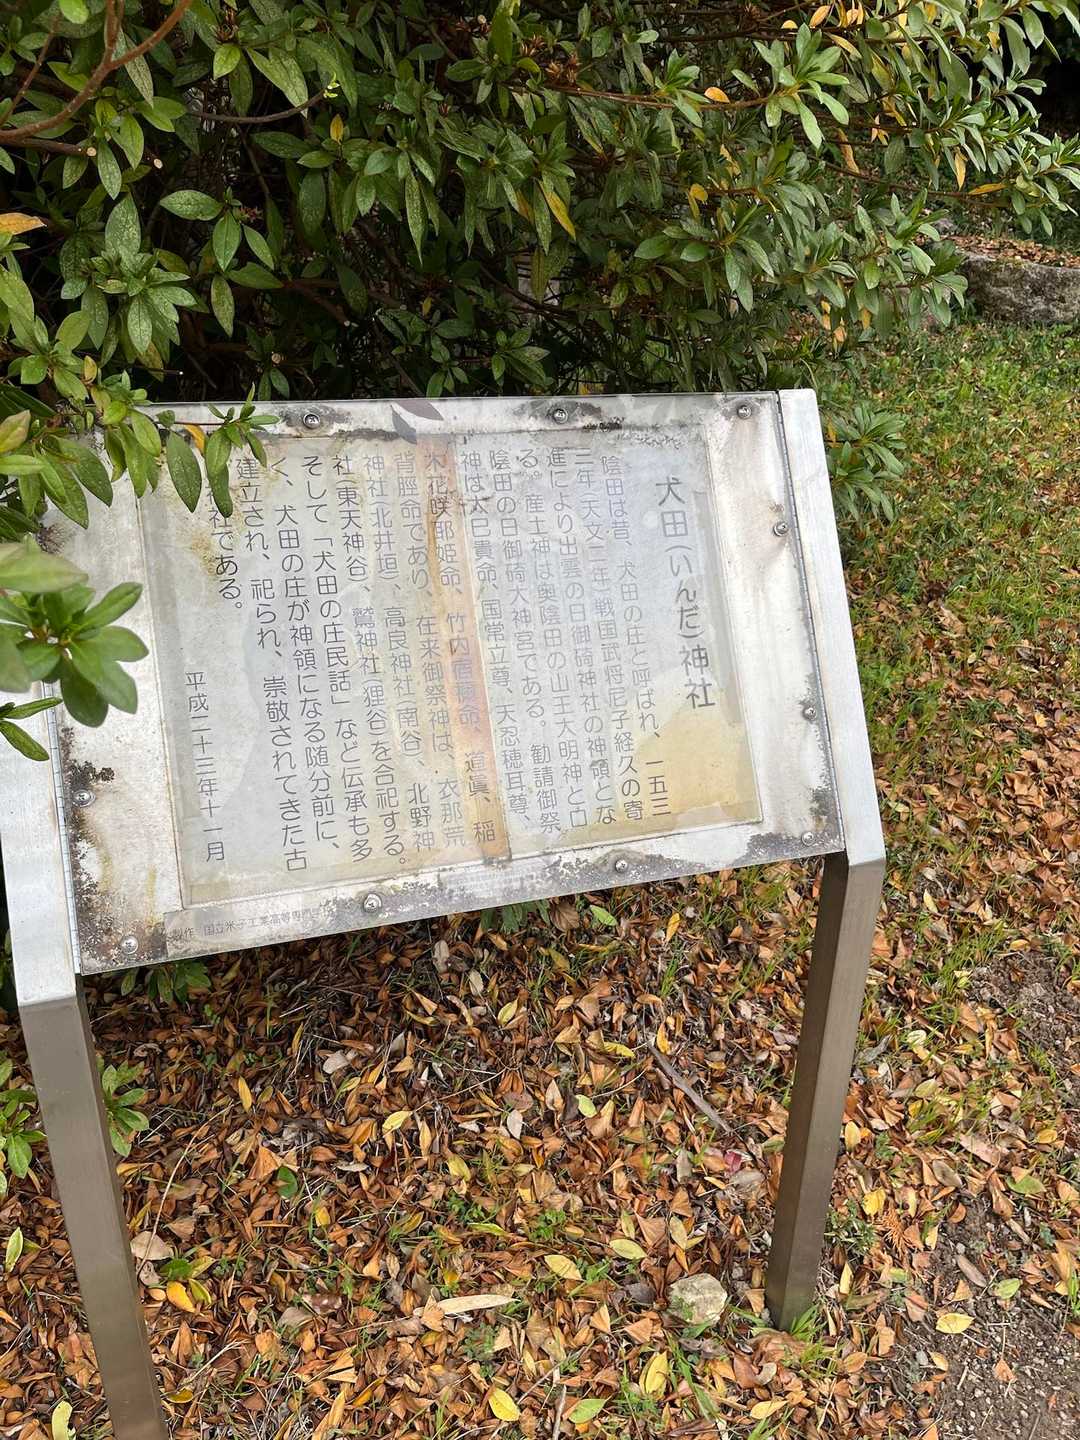 犬田(いんだ)神社
陰田は昔、犬田の庄と呼ばれ、一五三
三年(天文二年)戦国武将尼子経久の寄
進により出雲の日御碕神社の神領とな
る。産土神は奥陰田の山王大明神と口
陰田の日御碕大神宮である。勧請御祭
神は大巳貴命、国常立尊、天忍穂耳尊、
木花咲耶姫命、竹内宿禰命、道眞、稲
背脛命であり、在来御祭神は、衣那荒
神社(北井垣)、高良神社(南谷)、北野神
社(東天神谷)、鷲神社(狸谷)を合祀する。
そして「犬田の庄民話」など伝承も多
く、犬田の庄が神領になる随分前に、
建立され、祀られ、崇敬されてきた古
社である。
平成二十三年十一月
製作 国立米子工業高等専門